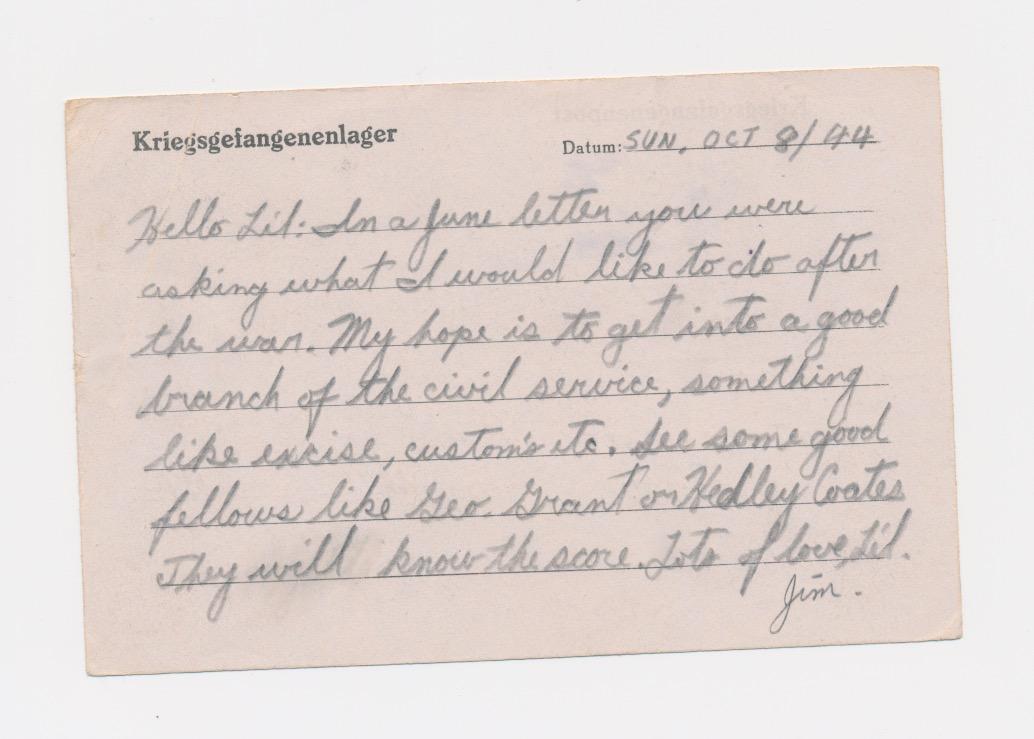 Kriegsgefangenenlager
Datum: SUN, OCT 8/44
Hello Lil: In a June letter you were
asking what I would like to do after
the war. My hope is to get into a good
branch of the civil service, something
like excise, custom's etc. See some good
fellows like Geo. Grant or Hedley Coates
They will know the score. Lots of love, Lil.
Jim.